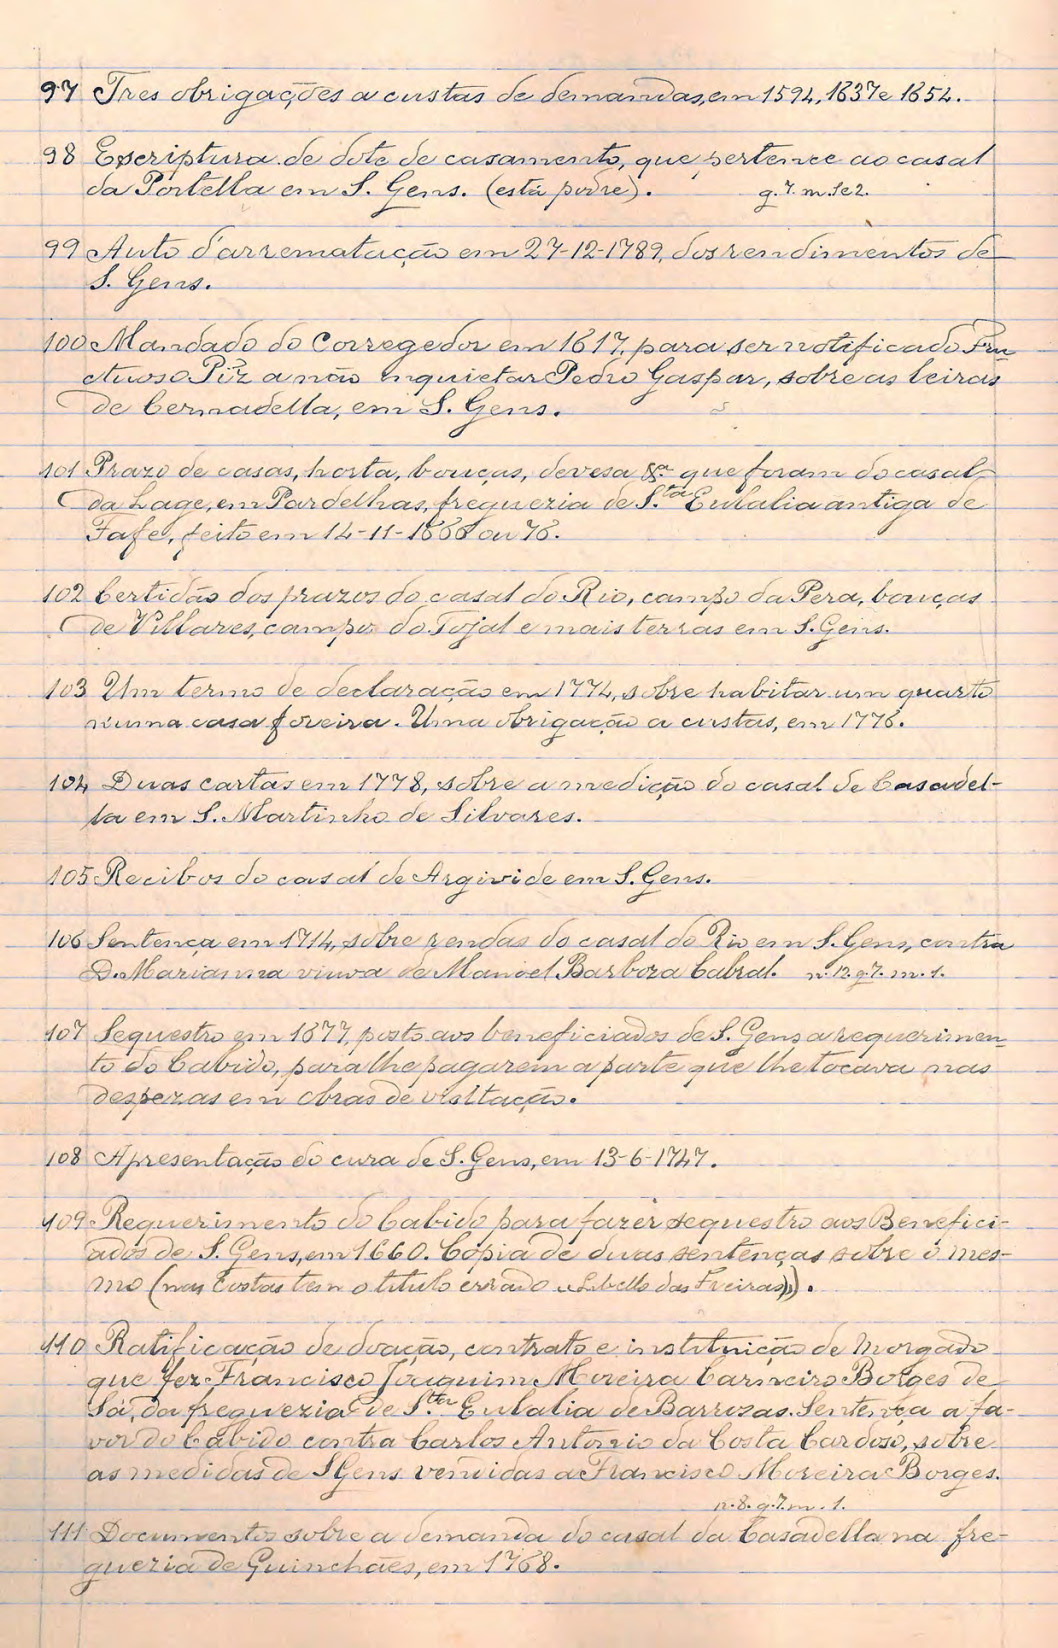 97 Tres obrigações a custas de demandas, em 1594, 1637 e 1652.
98 Escriptura de dote de casamento, que pertence ao casal
da Portella em S. Gens. (está podre). g. 7. m. 1 e 2.
99 Auto d'arrematação em 27-12-1789, dos rendimentos de
S. Gens.
100 Mandado do Corregedor em 1617, para ser notificado Fru
ctuoso Piz a não inquietar Pedro Gaspar, sobre as leiras
de Cernadella, em S. Gens.
101 Prazo de casas, horta, bouças, devesa &ª que foram do casal
da Lage, em Pardelhas, freguezia de S.ta Eulalia antiga de
Fafe, feito em 14-11-1666 ou 76.
102 Certidão dos prazos do casal do Rio, campo da Pera, bouças
de Villares, campo do Tojal e mais terras em S. Gens.
103 Um termo de declaração em 1774, sobre habitar um quarto
n'uma casa foreira. Uma obrigação a custas, em 1776.
104 Duas cartas em 1778, sobre a medição do casal de Casadel-
la em S. Martinho de Silvares.
105 Recibos do casal de Argivide em S. Gens.
106 Sentença em 1714, sobre rendas do casal do Rio em S. Gens, contra
D. Marianna viuva de Manoel Barboza Cabral. n. 12. g. 7. m. 1.
107 Sequestro em 1677, posto aos beneficiados de S. Gens a requerimen-
to do Cabido, para lhe pagarem a parte que lhe tocava nas
despezas em obras de visitação.
108 Apresentação do cura de S. Gens, em 13-6-1747.
109 Requerimento do Cabido para fazer sequestro aos Benefici-
ados de S. Gens, em 1660. Copia de duas sentenças sobre o mes-
mo (nas Costas tem o titulo errado «Libello das Freiras»).
110 Ratificação de doação, contrato e instituição de Morgado
que fez Francisco Joaquim Moreira Carneiro Borges de
Sá, da freguezia de S.ta Eulalia de Barrozas. Sentença a fa-
vor do Cabido contra Carlos Antonio da Costa Cardoso, sobre
as medidas de S Gens vendidas a Francisco Moreira Borges.
n. 8. g. 7. m. 1.
111 Documentos sobre a demanda do casal da Casadella na fre-
guezia de Guinchães, em 1768.